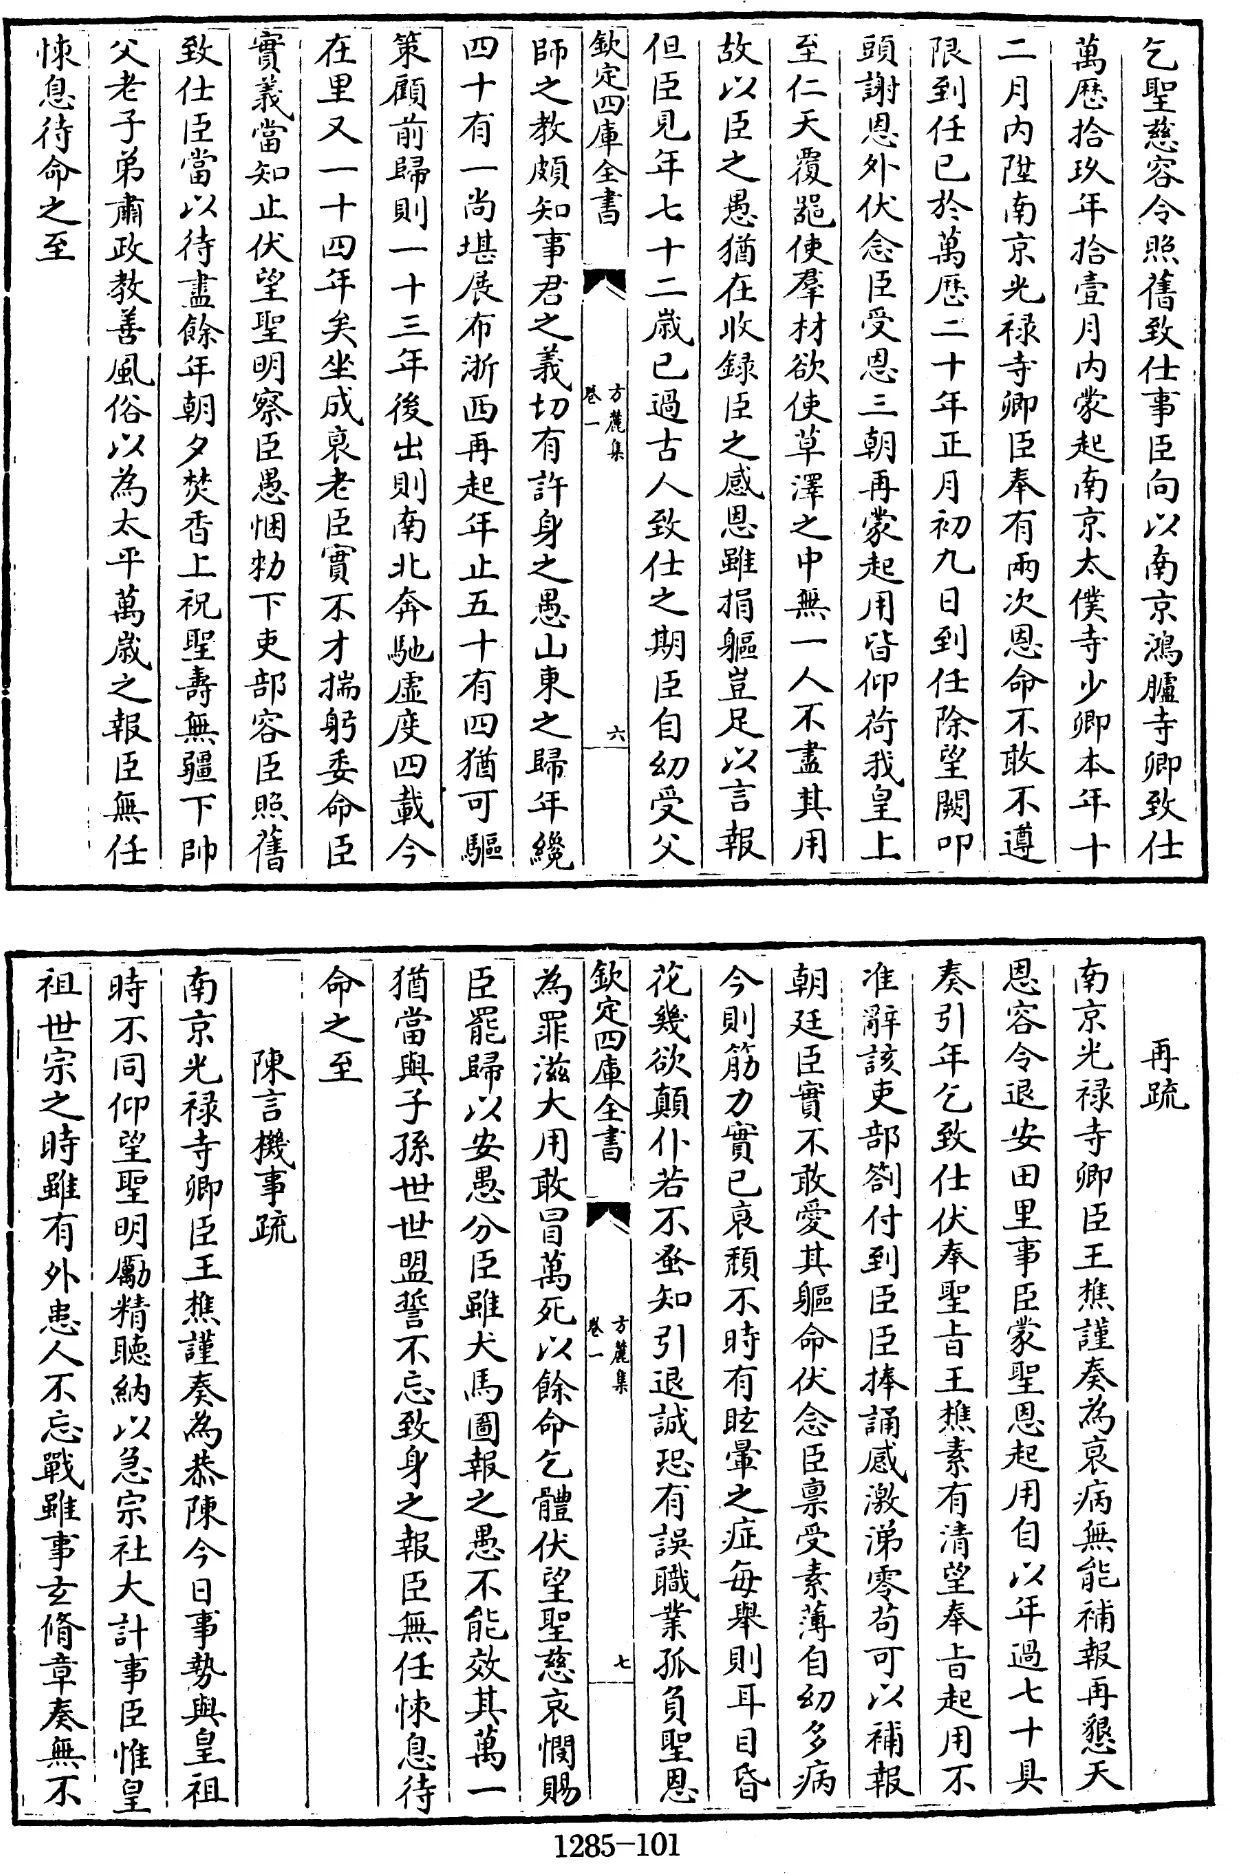 乞聖慈容令照舊致仕事臣向以南京鴻臚寺卿致仕
萬歷拾玖年拾壹月内蒙起南京太僕寺少卿本年十
二月内陞南京光禄寺卿臣奉有兩次恩命不敢不遵
限到任已於萬歷二十年正月初九日到任除望闕叩
頭謝恩外伏念臣受恩三朝再蒙起用皆仰荷我皇上
至仁天覆器使羣材欲使草澤之中無一人不盡其用
故以臣之愚猶在收録臣之感恩雖捐軀豈足以言報
但臣見年七十二歲已過古人致仕之期臣自幼受父
欽定四庫全書
方麓集
卷一
六
師之教頗知事君之義切有許身之愚山東之歸年纔
四十有一尚堪展布浙西再起年止五十有四猶可驅
策顧前歸則一十三年後出則南北奔馳虛度四載今
在里又一十四年矣坐成衰老臣實不才揣躬委命臣
實義當知止伏望聖明察臣愚悃勑下吏部容臣照舊
致仕臣當以待盡餘年朝夕焚香上祝聖壽無疆下帥
父老子弟肅政教善風俗以為太平萬歲之報臣無任
悚息待命之至
再疏
南京光禄寺卿臣王樵謹奏為衰病無能補報再懇天
恩容令退安田里事臣蒙聖恩起用自以年過七十具
奏引年乞致仕伏奉聖旨王樵素有清望奉旨起用不
准辭該吏部劄付到臣臣捧誦感激涕零苟可以補報
朝廷臣實不敢愛其軀命伏念臣禀受素薄自幼多病
今則筋力實已衰頹不時有眩暈之症每舉則耳目昏
花幾欲顛仆若不蚤知引退誠恐有誤職業孤負聖恩
欽定四庫全書
方麓集
卷一
七
為罪滋大用敢冒萬死以餘命乞體伏望聖慈哀憫賜
臣罷歸以安愚分臣雖犬馬圖報之愚不能效其萬一
猶當與子孫世世盟誓不忘致身之報臣無任悚息待
命之至
陳言機事疏
南京光禄寺卿臣王樵謹奏為恭陳今日事勢與皇祖
時不同仰望聖明勵精聽納以急宗社大計事臣惟皇
祖世宗之時雖有外患人不忘戰雖事玄脩章奏無不
1285-101